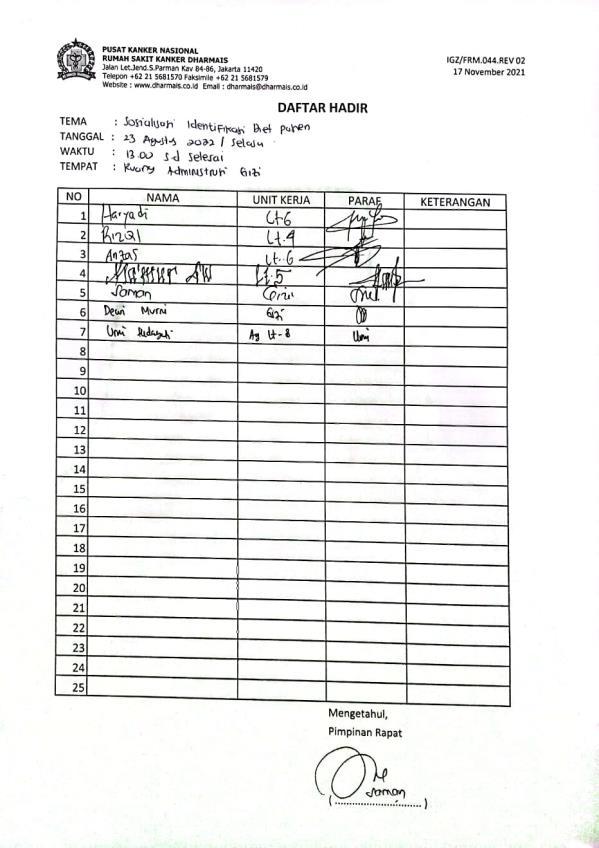 PUSAT KANKER NASIONAL
RUMAH SAKIT KANKER DHARMAIS
Jalan Let.Jend.S.Parman Kav 84-86, Jakarta 11420
Telepon +62 21 5681570 Faksimile +62 21 5681579
Website : www.dharmais.co.id Email : dharmais@dharmais.co.id
IGZ/FRM.044.REV 02
17 November 2021
DAFTAR HADIR
TEMA : Sosialisasi Identifikasi Diet Pasien
TANGGAL : 23 Agustus 2022 / Selasa
WAKTU : 13.00 s.d Selesai
TEMPAT : Ruang Administrasi Gizi
NO NAMA UNIT KERJA PARAF KETERANGAN
1 Haryadi Lt.6
2 Rizal Lt.4
3 Anzas Lt.6
4 Lt.5
5 Saman Gizi
6 Dewi Murni Gizi
7 Umi Ag Lt-8 Umi
8
9
10
11
12
13
14
15
16
17
18
19
20
21
22
23
24
25
Mengetahui,
Pimpinan Rapat
Saman
(........................)